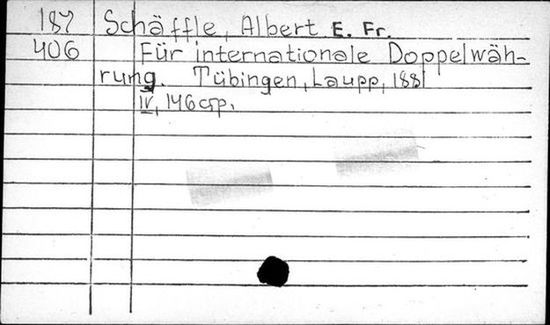 187 Schäffle, Albert E. Fr.
406 Für internationale Doppelwäh-
rung. Tübingen, Laupp, 1881
IV, 146 стр.